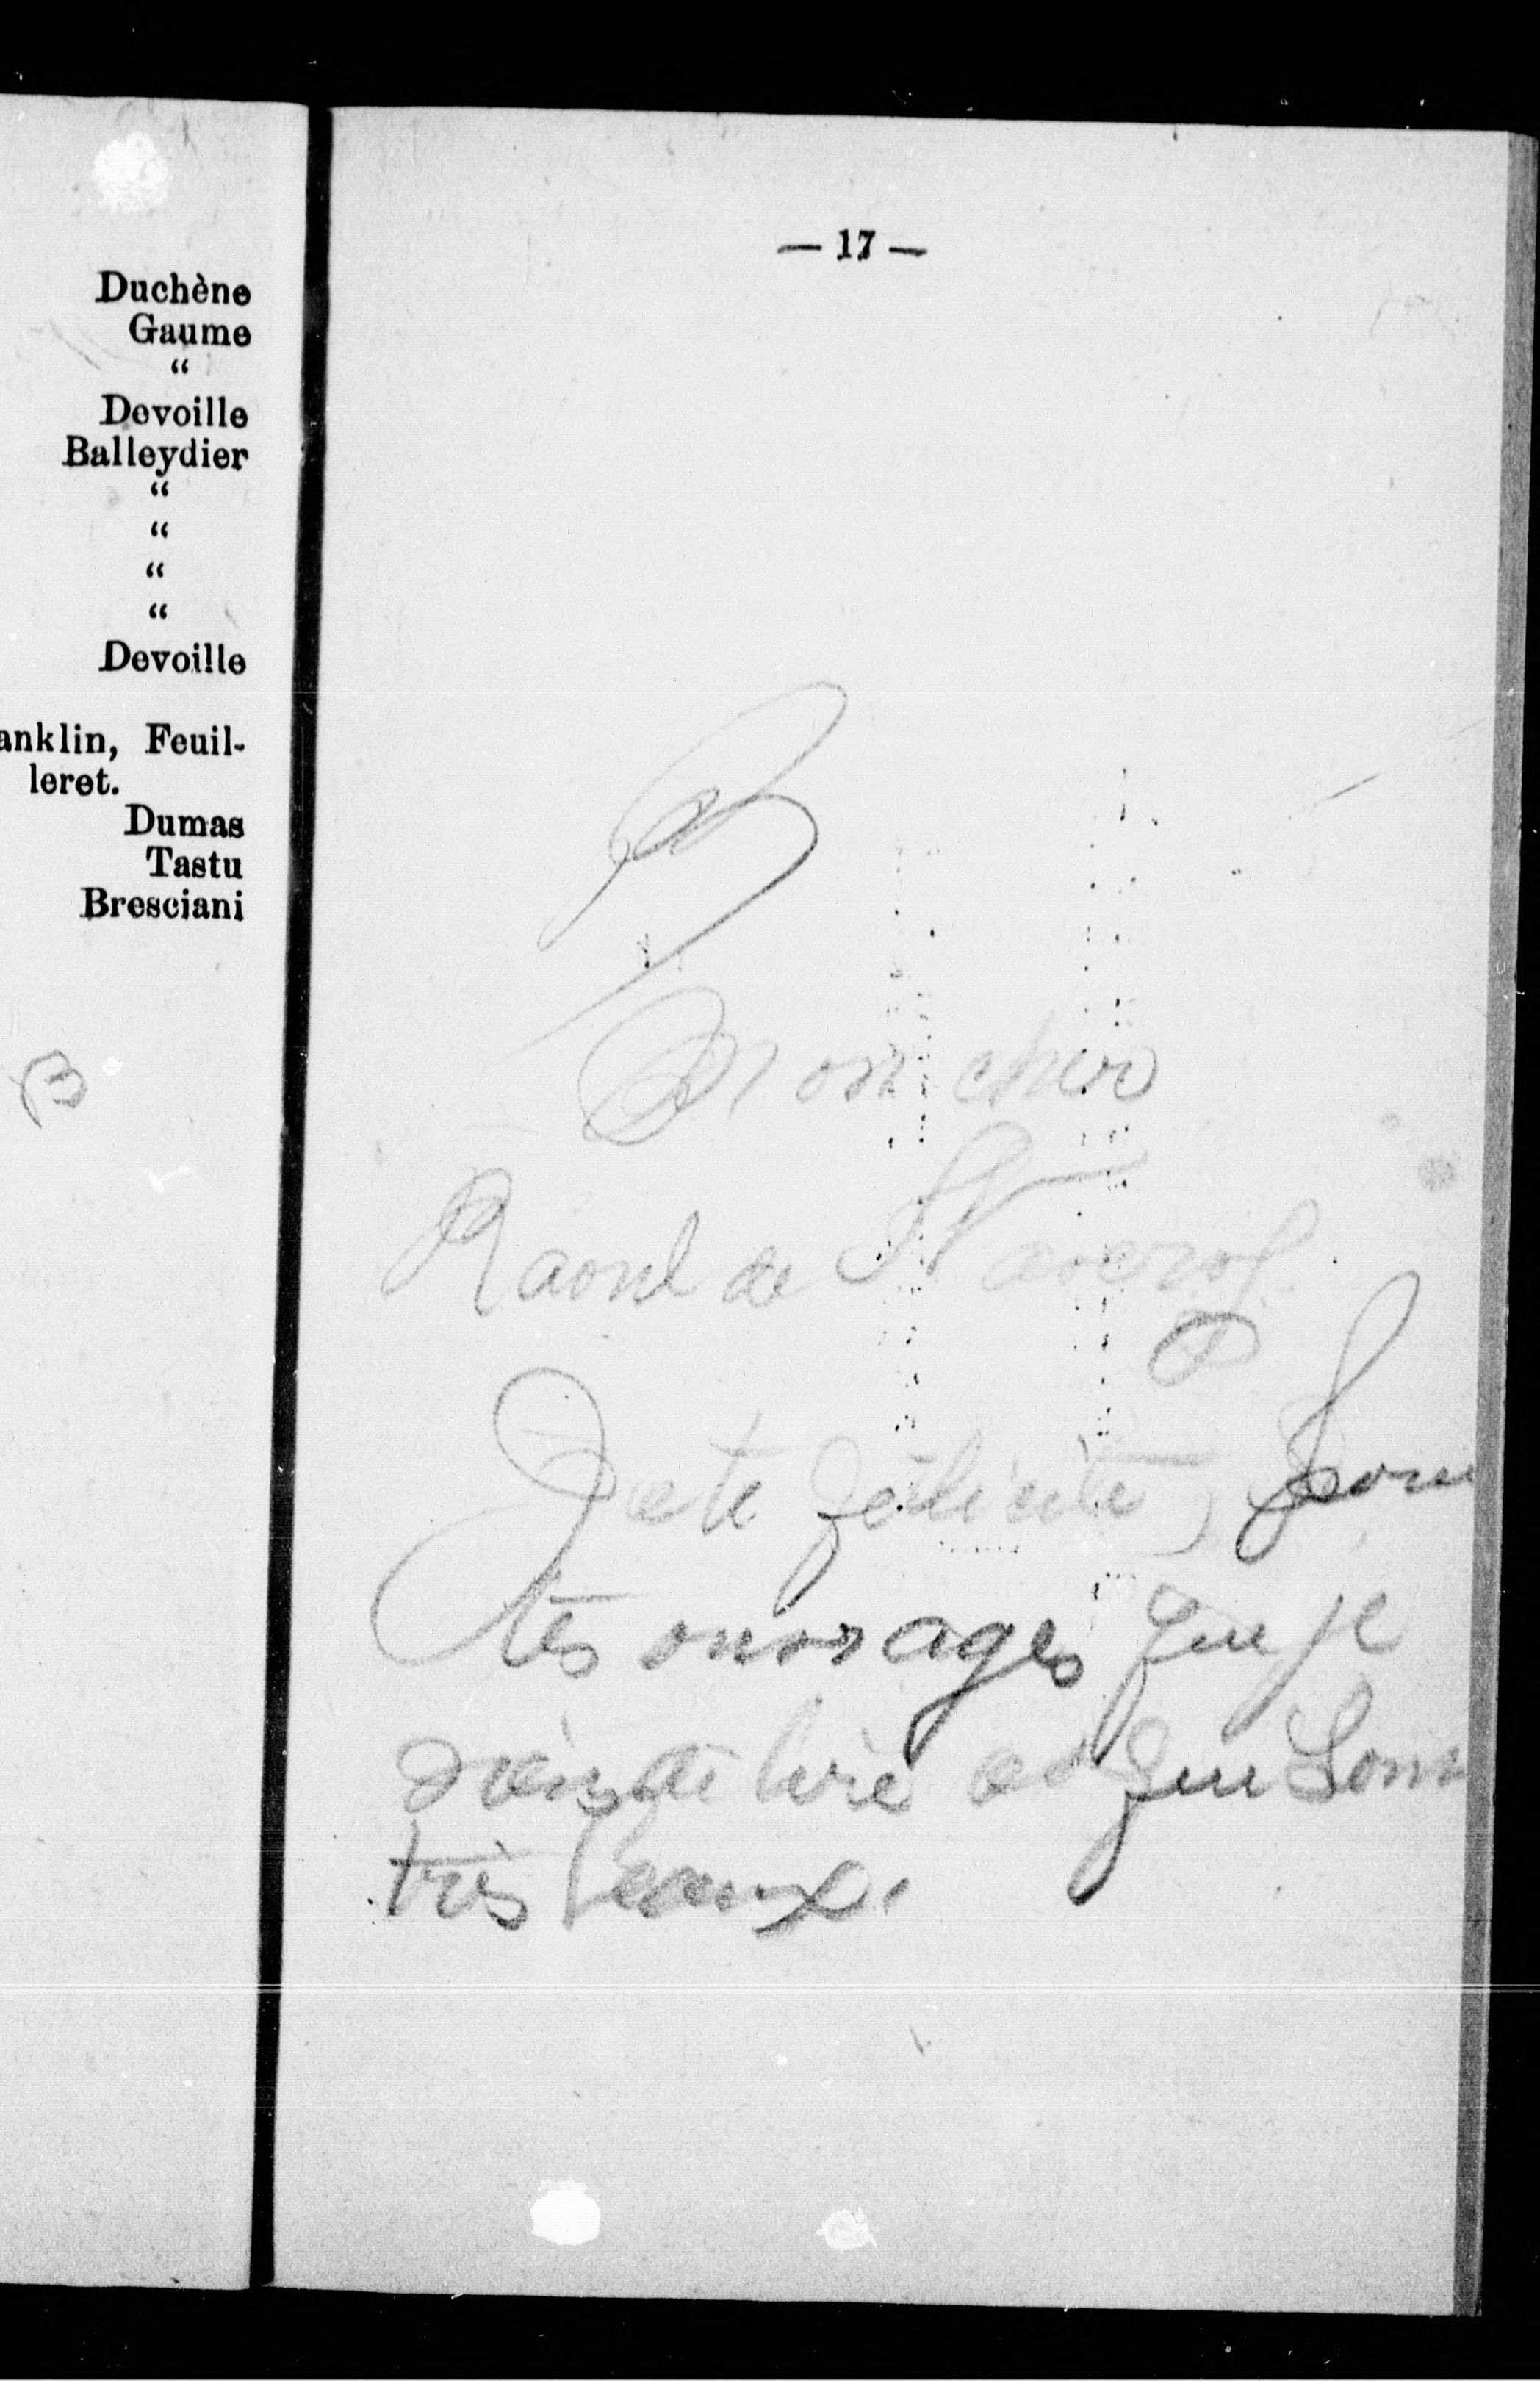 Duchène
Gaume
“
Devoille
Balleydier
“
“
“
“
Devoille
anklin, Feuil-
leret.
Dumas
Tastu
Bresciani
— 17 —
Mon cher
Raoul de Navery
Je te félicite, pour
tes ouvrages que je
viens de lire et qui sont
très beaux.